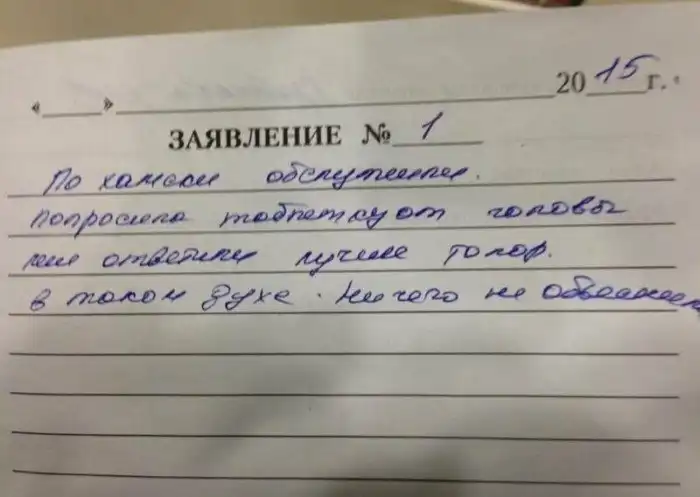 « » 2015 г.
ЗАЯВЛЕНИЕ № 1
По хамски обслужили.
попросила таблетку от головы
мне ответили лучше топор.
в таком духе. Ничего не объяснили